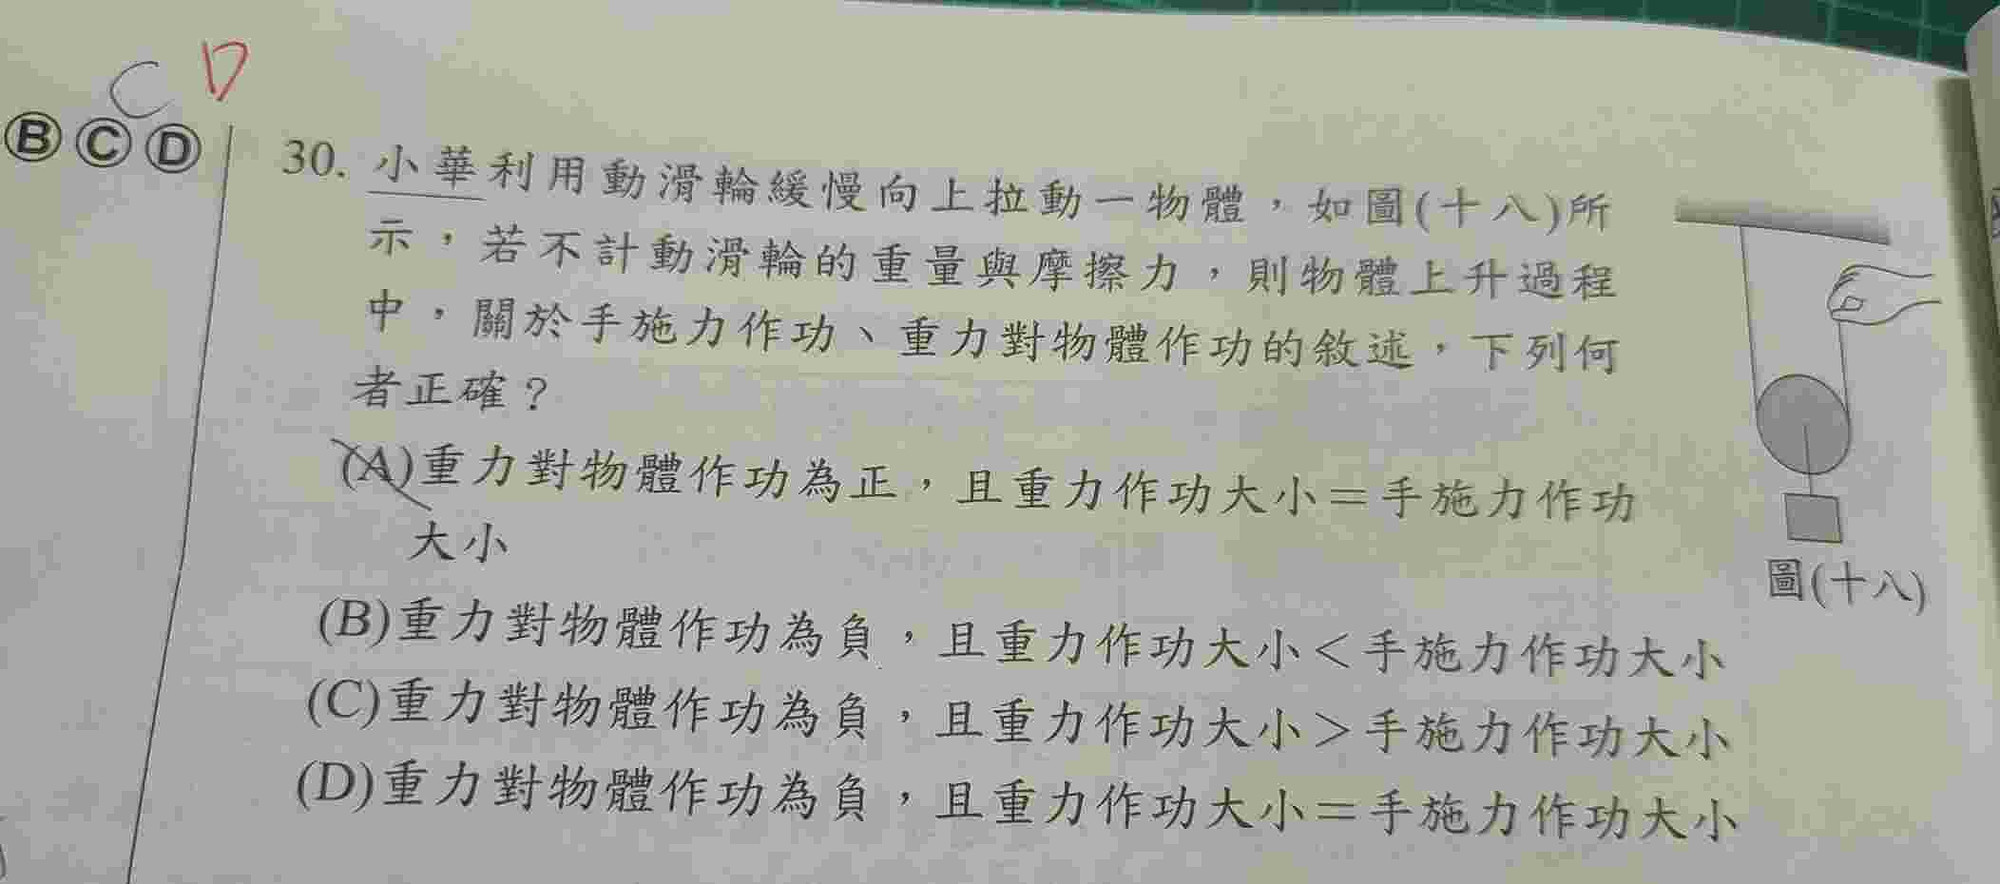 C D
Ⓑ Ⓒ Ⓓ
30. 小華利用動滑輪緩慢向上拉動一物體，如圖(十八)所
示，若不計動滑輪的重量與摩擦力，則物體上升過程
中，關於手施力作功、重力對物體作功的敘述，下列何
者正確？
(A)重力對物體作功為正，且重力作功大小＝手施力作功
大小
(B)重力對物體作功為負，且重力作功大小＜手施力作功大小
(C)重力對物體作功為負，且重力作功大小＞手施力作功大小
(D)重力對物體作功為負，且重力作功大小＝手施力作功大小
圖(十八)